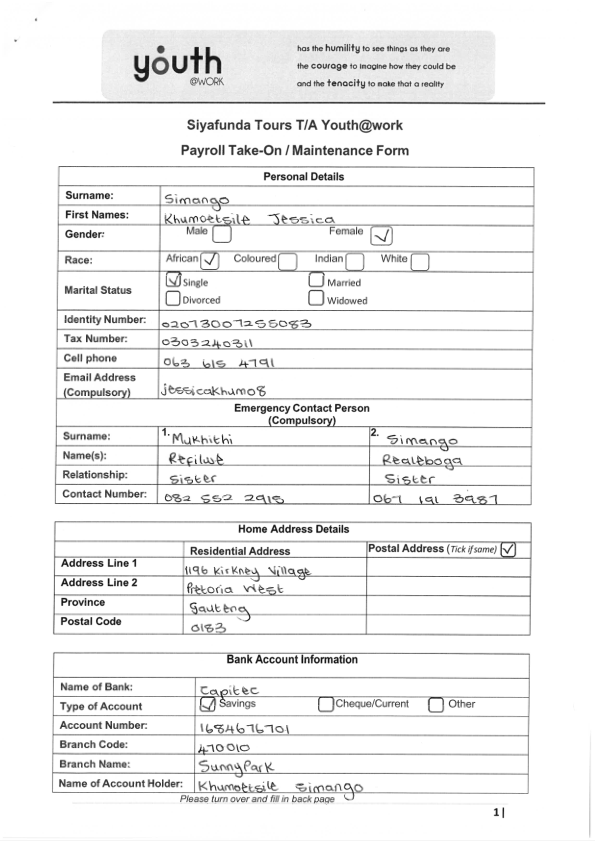 youth
@WORK
has the humility to see things as they are
the courage to imagine how they could be
and the tenacity to make that a reality
Siyafunda Tours T/A Youth@work
Payroll Take-On / Maintenance Form
Personal Details
Surname: Simango
First Names: Khumoetsile Jessica
Gender: Male Female
Race: African Coloured Indian White
Marital Status Single Married
Divorced Widowed
Identity Number: 02073007255083
Tax Number: 0303240311
Cell phone 063 615 4791
Email Address (Compulsory) jessicakhumo8
Emergency Contact Person
(Compulsory)
Surname: 1. Mukhithi 2. Simango
Name(s): Refilwe Realeboga
Relationship: Sister Sister
Contact Number: 082 552 2915 067 191 3987
Home Address Details
Residential Address Postal Address (Tick if same)
Address Line 1 1196 Kirkney Village
Address Line 2 Pretoria West
Province Gauteng
Postal Code 0183
Bank Account Information
Name of Bank: Capitec
Type of Account Savings Cheque/Current Other
Account Number: 1684676701
Branch Code: 470010
Branch Name: SunnyPark
Name of Account Holder: Khumoetsile Simango
Please turn over and fill in back page
1|